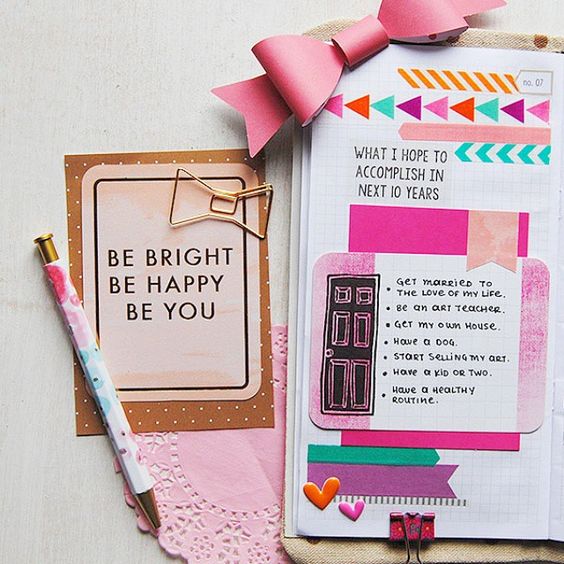 no. 07
WHAT I HOPE TO
ACCOMPLISH IN
NEXT 10 YEARS
BE BRIGHT
BE HAPPY
BE YOU
• GET MARRIED TO
THE LOVE OF MY LIFE.
• BE AN ART TEACHER.
• GET MY OWN HOUSE.
• HAVE A DOG.
• START SELLING MY ART.
• HAVE A KID OR TWO.
• HAVE A HEALTHY
ROUTINE.